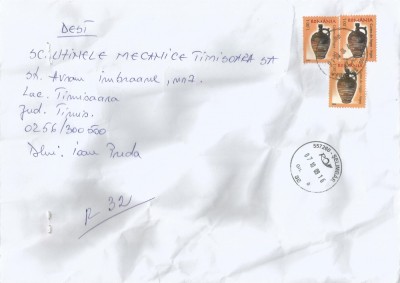 DEST
SC. UTINELE MECANICE TIMISOARA SA
str. Avram Imbroane, nr.
Loc. Timisoara
Jud. Timis.
0256/300500
Dlui: Ioan Preda
R 32
ROMANIA
ROMANIA
ROMANIA